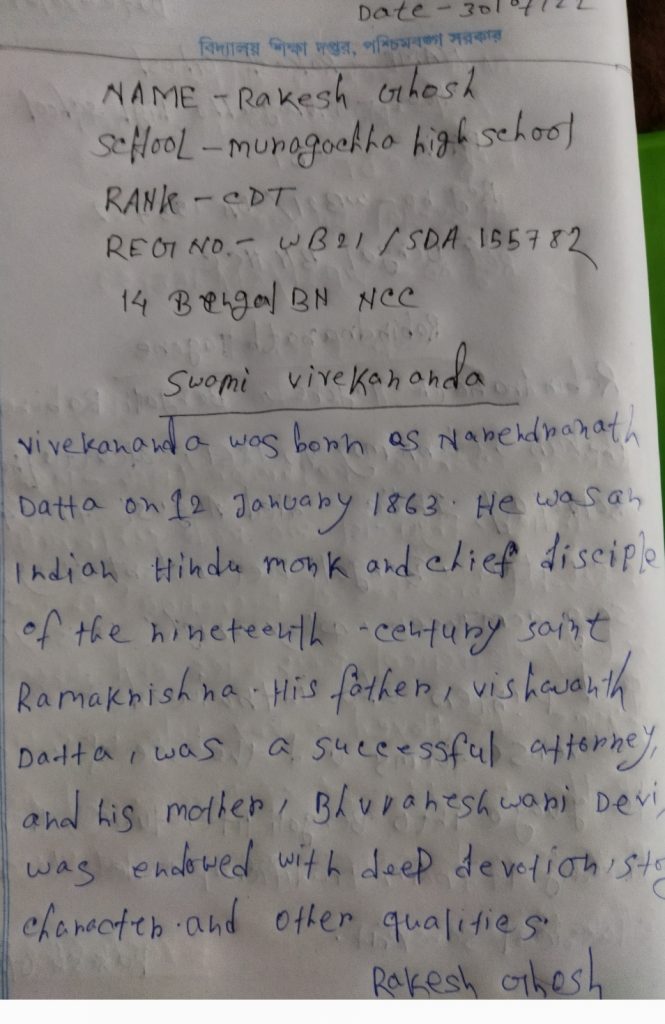 Date - 30/07/22
বিদ্যালয় শিক্ষা দপ্তর, পশ্চিমবঙ্গ সরকার
NAME - Rakesh Ghosh
SCHOOL - muragachha high school
RANK - CDT
REGI NO. - WB21 / SDA 155782
14 Bengal BN NCC
Swami vivekananda
vivekananda was born as Narendranath
Datta on 12 January 1863. He was an
Indian Hindu monk and chief disciple
of the nineteenth -century saint
Ramakrishna. His father, vishwanth
Datta, was a successful attorney,
and his mother, Bhuvaneshwari Devi,
was endowed with deep devotion, sto
character and other qualities.
Rakesh Ghosh